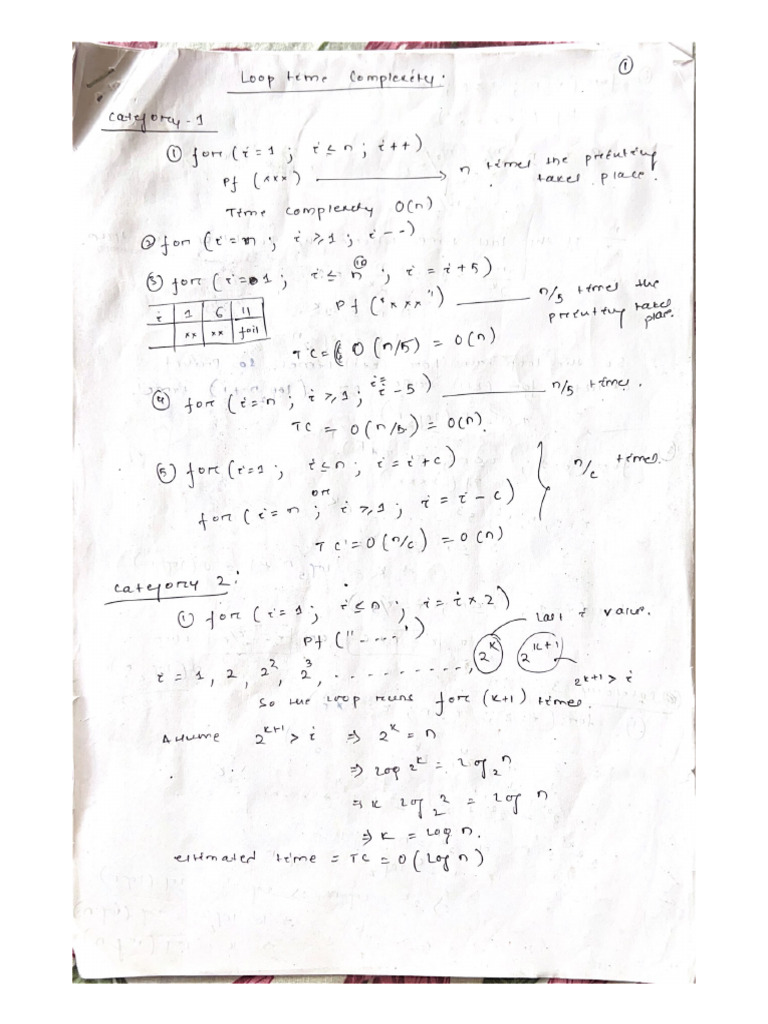 ①
Loop time Complexity.
Category-1
① for (i=1 ; i ≤ n ; i++)
Pf (***) ⟶ n times the printing
takes place.
Time complexity O(n)
② for (i=n ; i ≥ 1 ; i--)
③ for (i=1 ; i ≤ n ; i = i+5)
⑩
Pf ("***") — n/5 times the
printing takes
place.
i 1 6 11
** ** fail
TC = O(n/5) = O(n)
④ for (i=n ; i ≥ 1 ; i=i-5) — n/5 times.
TC = O(n/5) = O(n).
⑤ for (i=1 ; i≤n ; i=i+c)
or
for (i=n ; i ≥ 1 ; i = i-c) } n/c times.
TC = O(n/c) = O(n)
Category 2:
① for (i=1 ; i≤n ; i = i×2)
Pf ("----") last i value.
i = 1, 2, 2², 2³, .........., 2^k 2^(k+1)
2^(k+1) > i
So the loop runs for (k+1) times.
Assume 2^(k+1) > i ⇒ 2^k = n
⇒ log 2^k = log₂ n
⇒ k log₂ 2 = log n
⇒ k = log n.
estimated time = TC = O(log n)